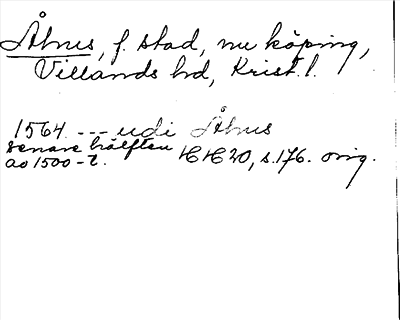 Åhus, f. stad, nu köping,
Villands hd, Krist. l.
1564 --- udi Åhus
senare hälften
av 1500-t. HH 20, s. 176. orig.